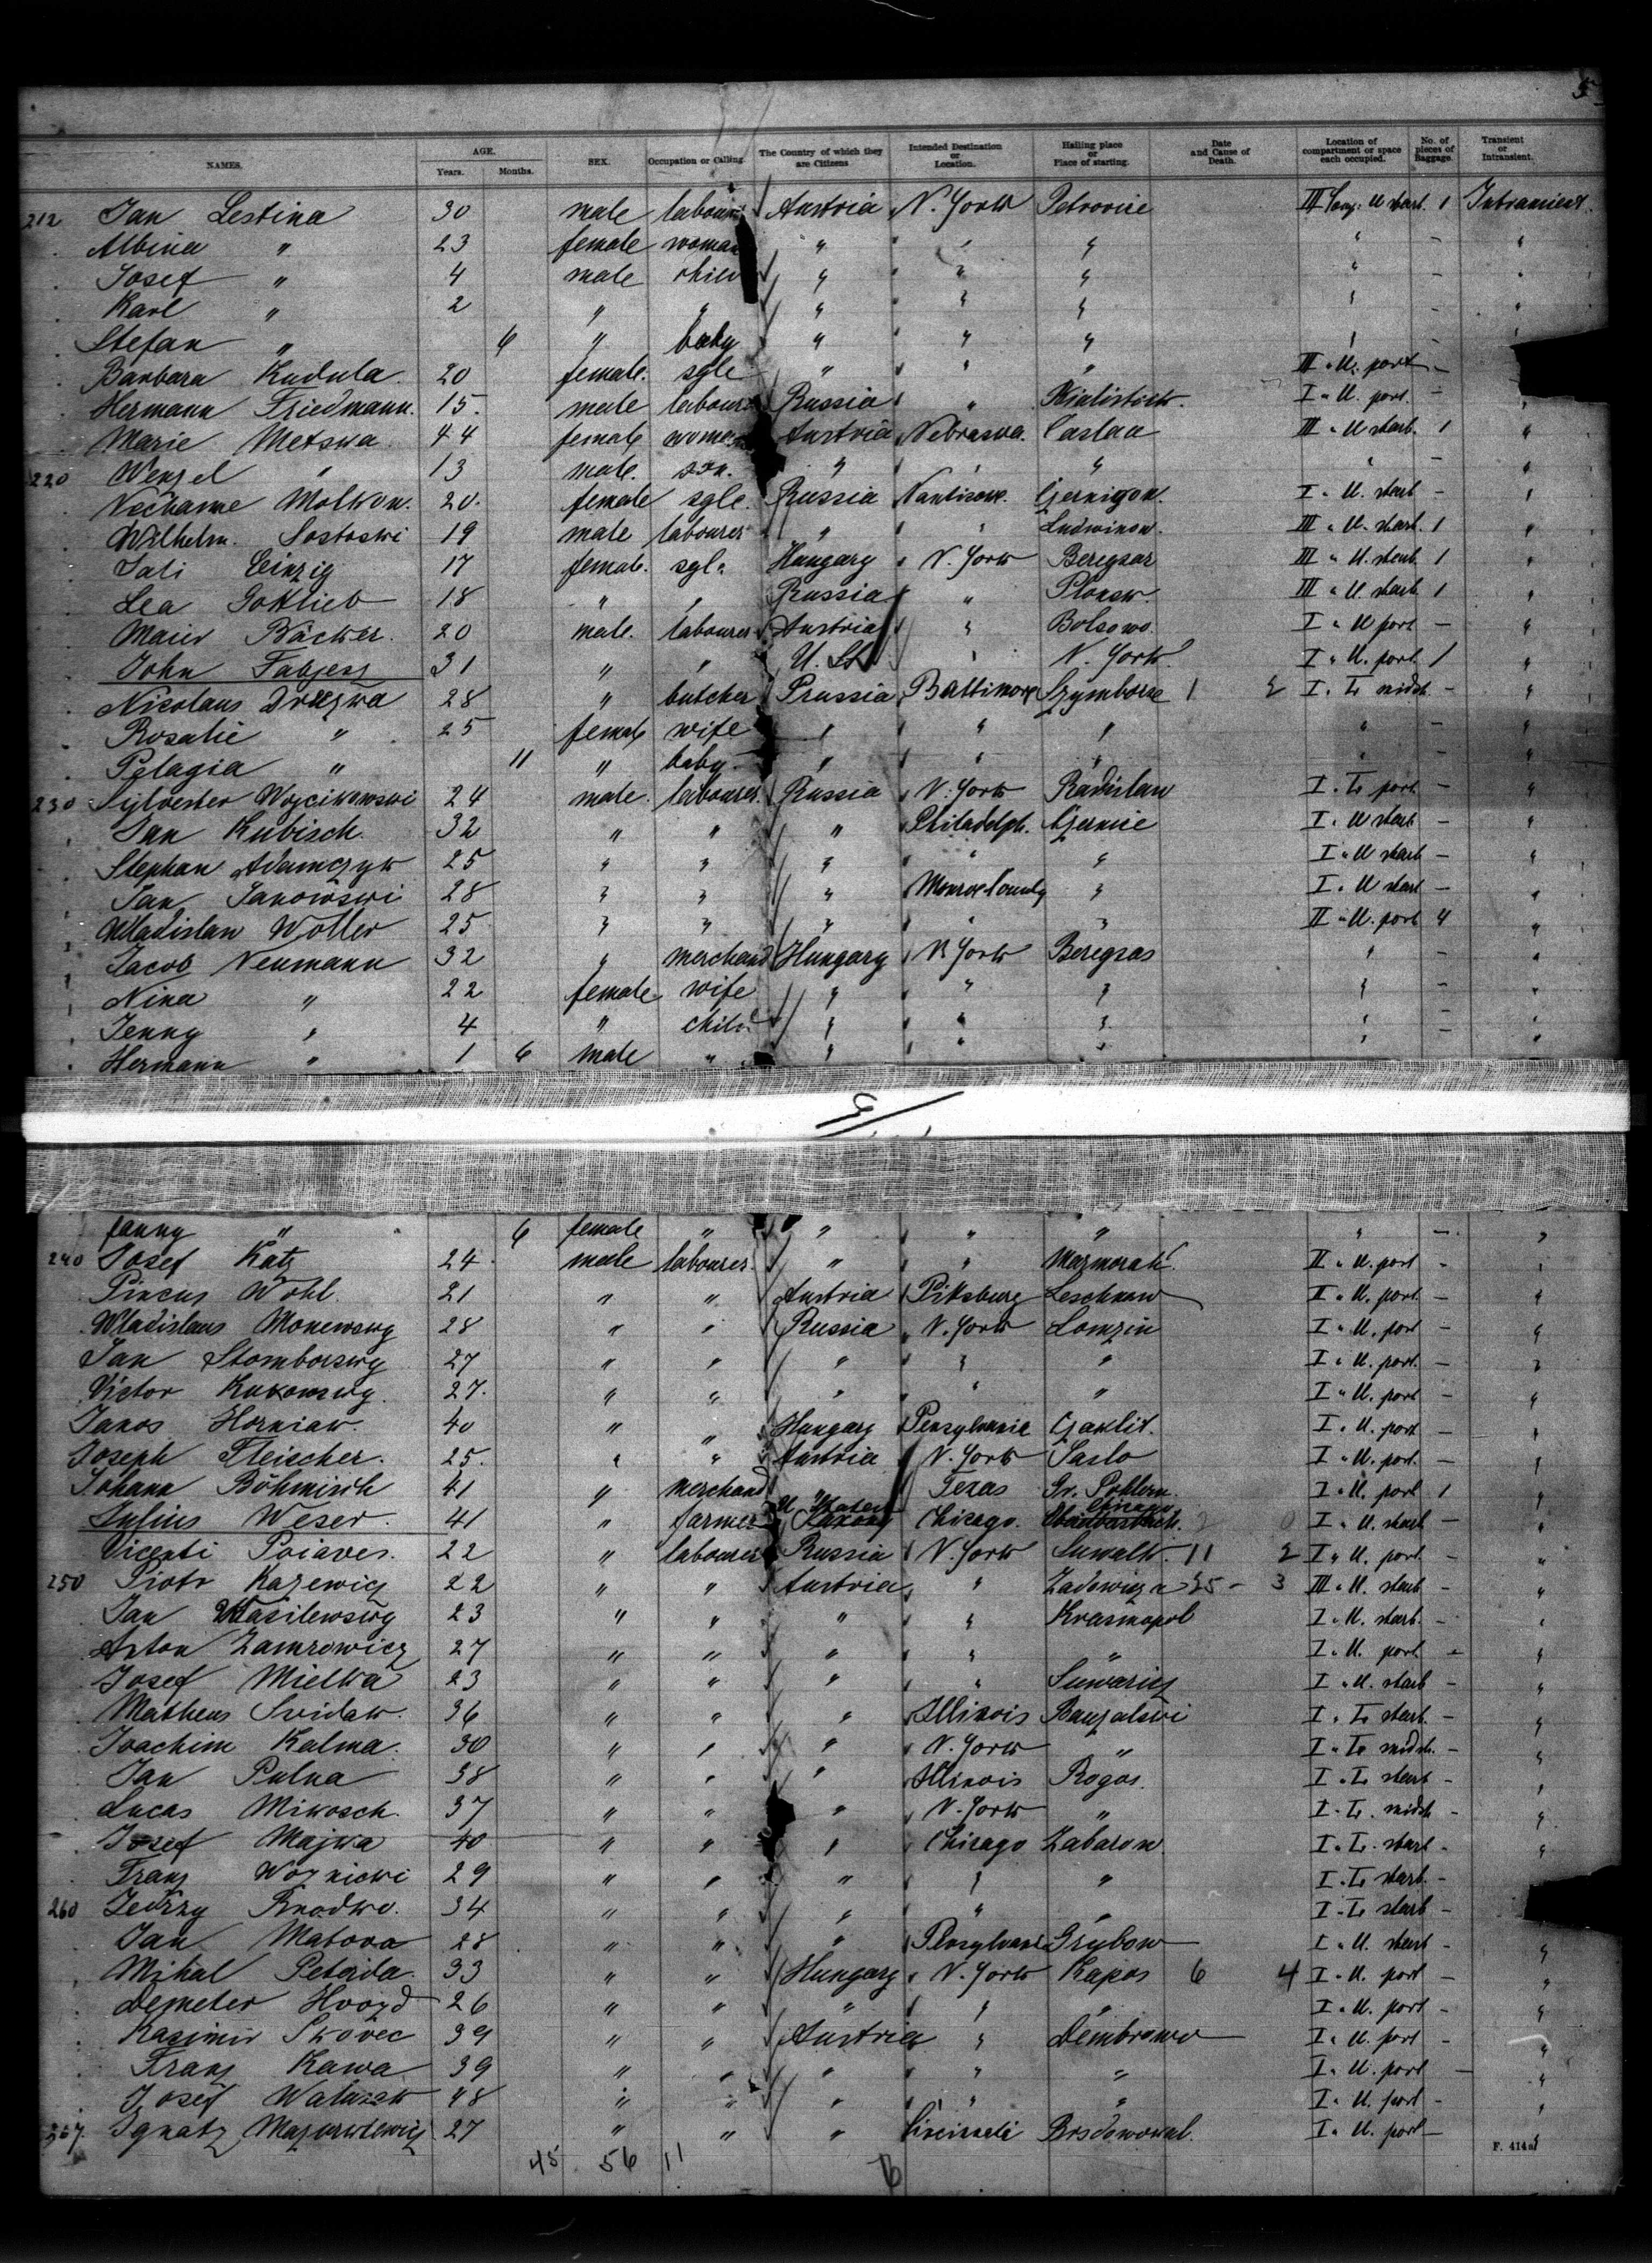 5
NAMES. AGE. Years. Months. SEX. Occupation or Calling. The Country of which they are Citizens Intended Destination or Location. Hailing place or Place of starting. Date and Cause of Death. Location of compartment or space each occupied. No. of pieces of Baggage. Transient or Intransient.
212 Jan Lestina 30 male labour Austria N. York Petrovice III U. starb. 1 Intransient.
Albina " 23 female woman " " " " - "
Josef " 4 male child " " " " - "
Karl " 2 " " " " " " - "
Stefan " 6 " baby " " " "
Barbara Kudula. 20 female. sgle " " " III " U. port -
Hermann Friedmann. 15. male labour Russia " I " U. port. - "
Marie Metswa 44 female Austria Nebraska. Caslau III " U starb. 1 "
220 Wenzel " 13 male. son. " " " " - "
Nechame Molkow. 20. female sgle. Russia I " U. starb - "
Wilhelm. Sostoski 19 male labourer " " Ludwinow. III " U. starb. 1 "
Sali Einzig 17 female. sgl. Hungary N. York Beregsas III " U. starb 1 "
Lea Gottlieb 18 " " Russia " Plonsk. III " U. starb. 1 "
Maier Bäcker. 20 male. labourer Austria " Bolsowo. I " U port - "
John Fabjess 31 " " U. St. " N. York I " U. port. 1 "
Nicolaus Drezwa 28 " butcher Prussia Baltimore Szymborze 1 2 I. L. midsh. - "
Rosalie " 25 female wife " " " " - "
Pelagia " 11 " baby. " " " " - "
230 Sylvester Wojcikowski 24 male. labourer. Russia N. York Radislaw I. L. port. - "
Jan Kubisch. 32 " " " Philadelph. I. U starb. - "
Stephan Adamczyk 25 " " " " " I " U starb - "
Jan Janowski 28 " " " Monroe County " I. U starb - "
Wladislaw Woller 25 " " " " " II " U. port 4 "
Jacob Neumann 32 " merchand Hungary N York Beregsas " - "
Nina " 22 female wife " " " " - "
Jenny " 4 " child " " " " - "
Hermann " 1 6 male " " " "
Fanny " 6 female " " " " " - "
240 Josef Katz 24. male labourer. " " II " U. port - "
Pincus Wohl. 21 " " Austria Pitsburg Leschkow II " U. port. - "
Wladislaus Monewsky 28 " " Russia N. York Lomzin I " U. port - "
Jan Stomborsky 27 " " " " " I " U. port. - "
Victor 27. " " " " " I " U. port - "
Janos Horniak. 40 " " Hungary Pensylvania I. U. port - "
Joseph Fleischer. 25. " " Austria N. York Jaslo I " U. port. - "
Johann Böhmisch 41 " merchand " Texas I " U. port 1 "
Julius Weser. 41 " farmer U States Chicago. Chicago I " U. starb - "
Vicenti Poiaves. 22 " labourer Russia N. York Suwalk. 11 2 I " U. port. - "
250 Piotr Kazewicz 22 " " Austria " 25 - 3 III " U. starb - "
Jan Wasilewsky 23 " " " " Krasnopol I " U. starb. - "
Anton Zamrowicz 27 " " " " " I " U. port - "
Josef Mielka 23 " " " " I " U. starb - "
Matheus Svidak. 36 " " " Illinois I " L. starb. - "
Joachim Kalma. 30 " " " N. York " I " L. midsh. - "
Jan Pulna 38 " " " Illinois Rogos. I " L. starb - "
Lucas Mikosch. 37 " " " N. York " I. L. midsh - "
Josef Majka 40 " " " Chicago Zabarow. I " L. starb - "
Franz Woznicki 29 " " " " " I. L. starb. - "
260 Jedrzy 34 " " " " " I. L. starb -
Jan Matova 28 " " " Pensylvan. Grybow I " U. starb - "
Mihal Peterda. 33 " " Hungary N. York Kapos 6 4 I " U. port - "
Demeter Hvozd 26 " " " " " I " U. port - "
Kasimir Skovec 39 " " Austria " Dembrowa I " U. port - "
Franz Kawa 39 " " " " " I " U. port - "
Josef 48 " " " " " I " U. port - "
267. Ignatz 27 " " " I. U. port - "
F. 414a
45 56 11